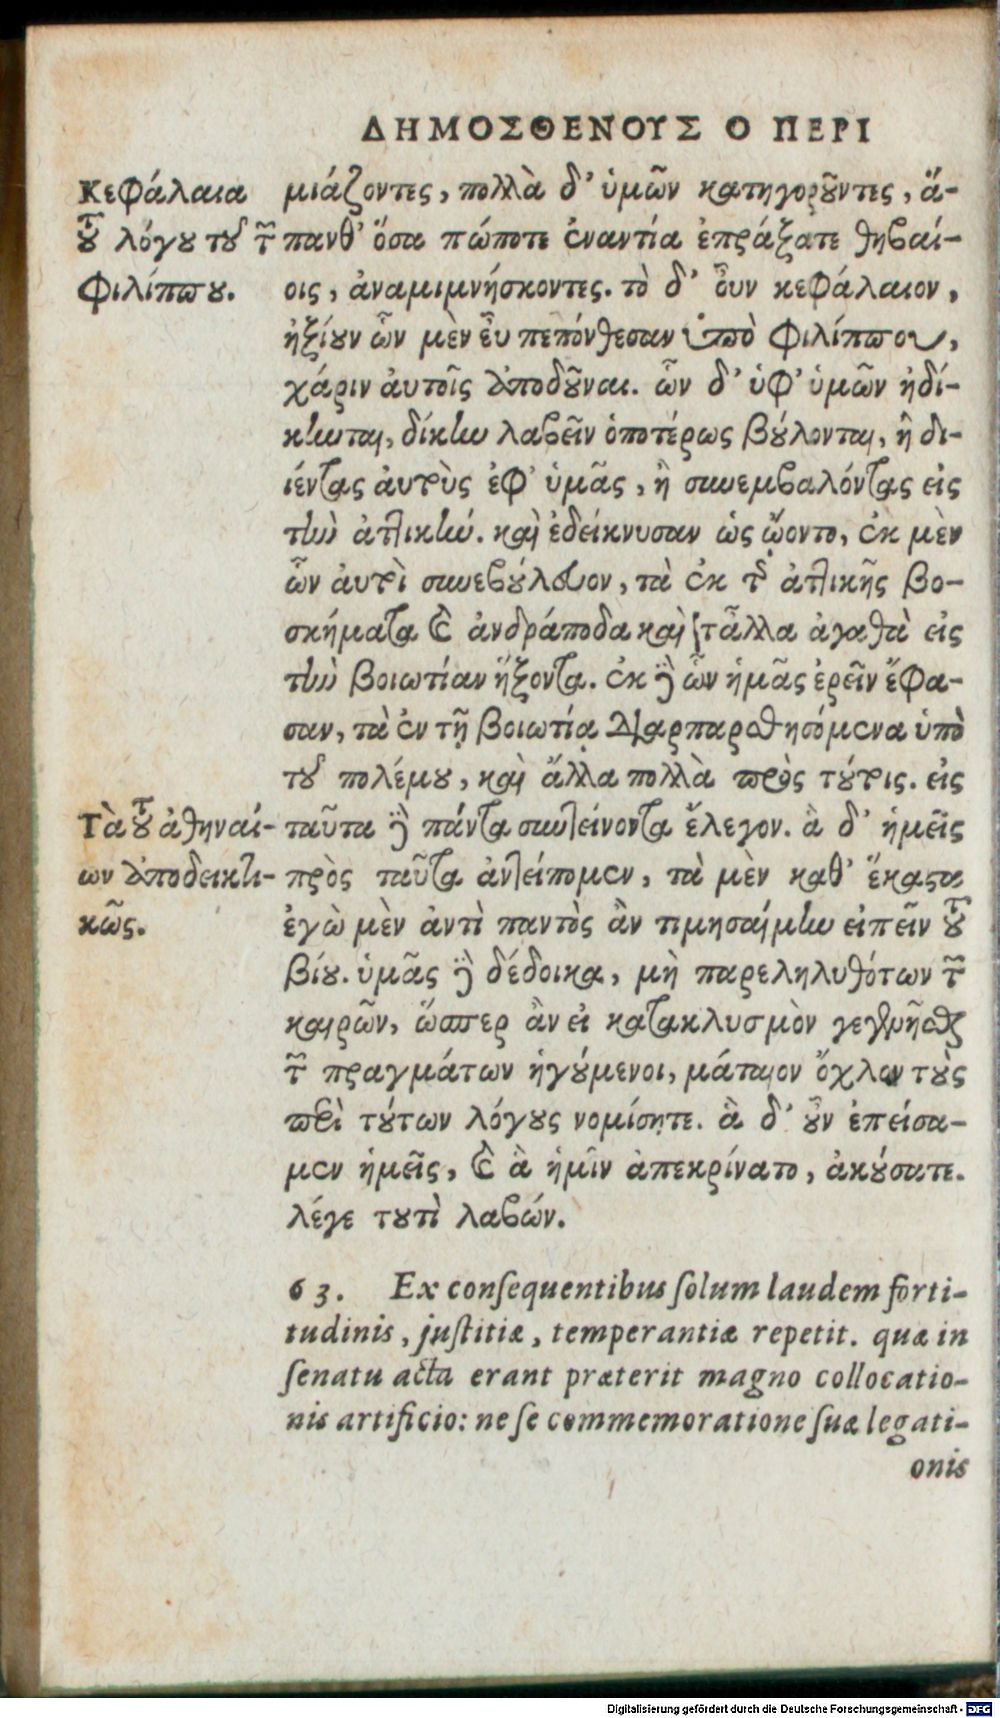 ΔΗΜΟΣΘΕΝΟΥΣ Ο ΠΕΡΙ
Κεφάλαια
τοῦ λόγου τοῦ τῶν
Φιλίππου.
μιάζοντες, πολλὰ δ' ὑμῶν κατηγοροῦντες, ἅ-
πανθ' ὅσα πώποτε ἐναντία ἐπράξατε θηβαί-
οις, ἀναμιμνήσκοντες. τὸ δ' οὖν κεφάλαιον,
ἠξίουν ὧν μὲν εὖ πεπόνθεσαν ὑπὸ Φιλίππου,
χάριν ἀυτοῖς ἀποδοῦναι. ὧν δ' ὑφ' ὑμῶν ἠδί-
κηνται, δίκην λαβεῖν ὁποτέρως βούλονται, ἢ δι-
ιέντας ἀυτοὺς ἐφ' ὑμᾶς, ἢ συνεμβαλόντας εἰς
τὴν ἀττικήν. καὶ ἐδείκνυσαν ὡς ᾤοντο, ἐκ μὲν
ὧν ἀυτοὶ συνεβούλευον, τὰ ἐκ τῆς ἀττικῆς βο-
σκήματα καὶ ἀνδράποδα καὶ τἆλλα ἀγαθὰ εἰς
τὴν βοιωτίαν ἥξοντα. ἐκ δὲ ὧν ἡμᾶς ἐρεῖν ἔφα-
σαν, τὰ ἐν τῇ βοιωτίᾳ διαρπασθησόμενα ὑπὸ
τοῦ πολέμου, καὶ ἄλλα πολλὰ πρὸς τούτοις. εἰς
Τὰ τοῦ ἀθηναί-
ων ἀποδεικτι-
κῶς.
ταῦτα δὲ πάντα συντείνοντα ἔλεγον. ἃ δ' ἡμεῖς
πρὸς ταῦτα ἀντείπομεν, τὰ μὲν καθ' ἕκαστα
ἐγὼ μὲν ἀντὶ παντὸς ἂν τιμησαίμην εἰπεῖν τοῦ
βίου. ὑμᾶς δὲ δέδοικα, μὴ παρεληλυθότων τῶν
καιρῶν, ὥσπερ ἂν εἰ κατακλυσμὸν γεγενῆσθαι
τῶν πραγμάτων ἡγούμενοι, μάταιον ὄχλον τοὺς
περὶ τούτων λόγους νομίσητε. ἃ δ' οὖν ἐπείσα-
μεν ἡμεῖς, καὶ ἃ ἡμῖν ἀπεκρίνατο, ἀκούσατε.
λέγε τουτὶ λαβών.
63. Ex consequentibus solum laudem forti-
tudinis, justitiæ, temperantiæ repetit. quæ in
senatu acta erant præterit magno collocatio-
nis artificio: ne se commemoratione suæ legati-
onis
Digitalisierung gefördert durch die Deutsche Forschungsgemeinschaft - DFG